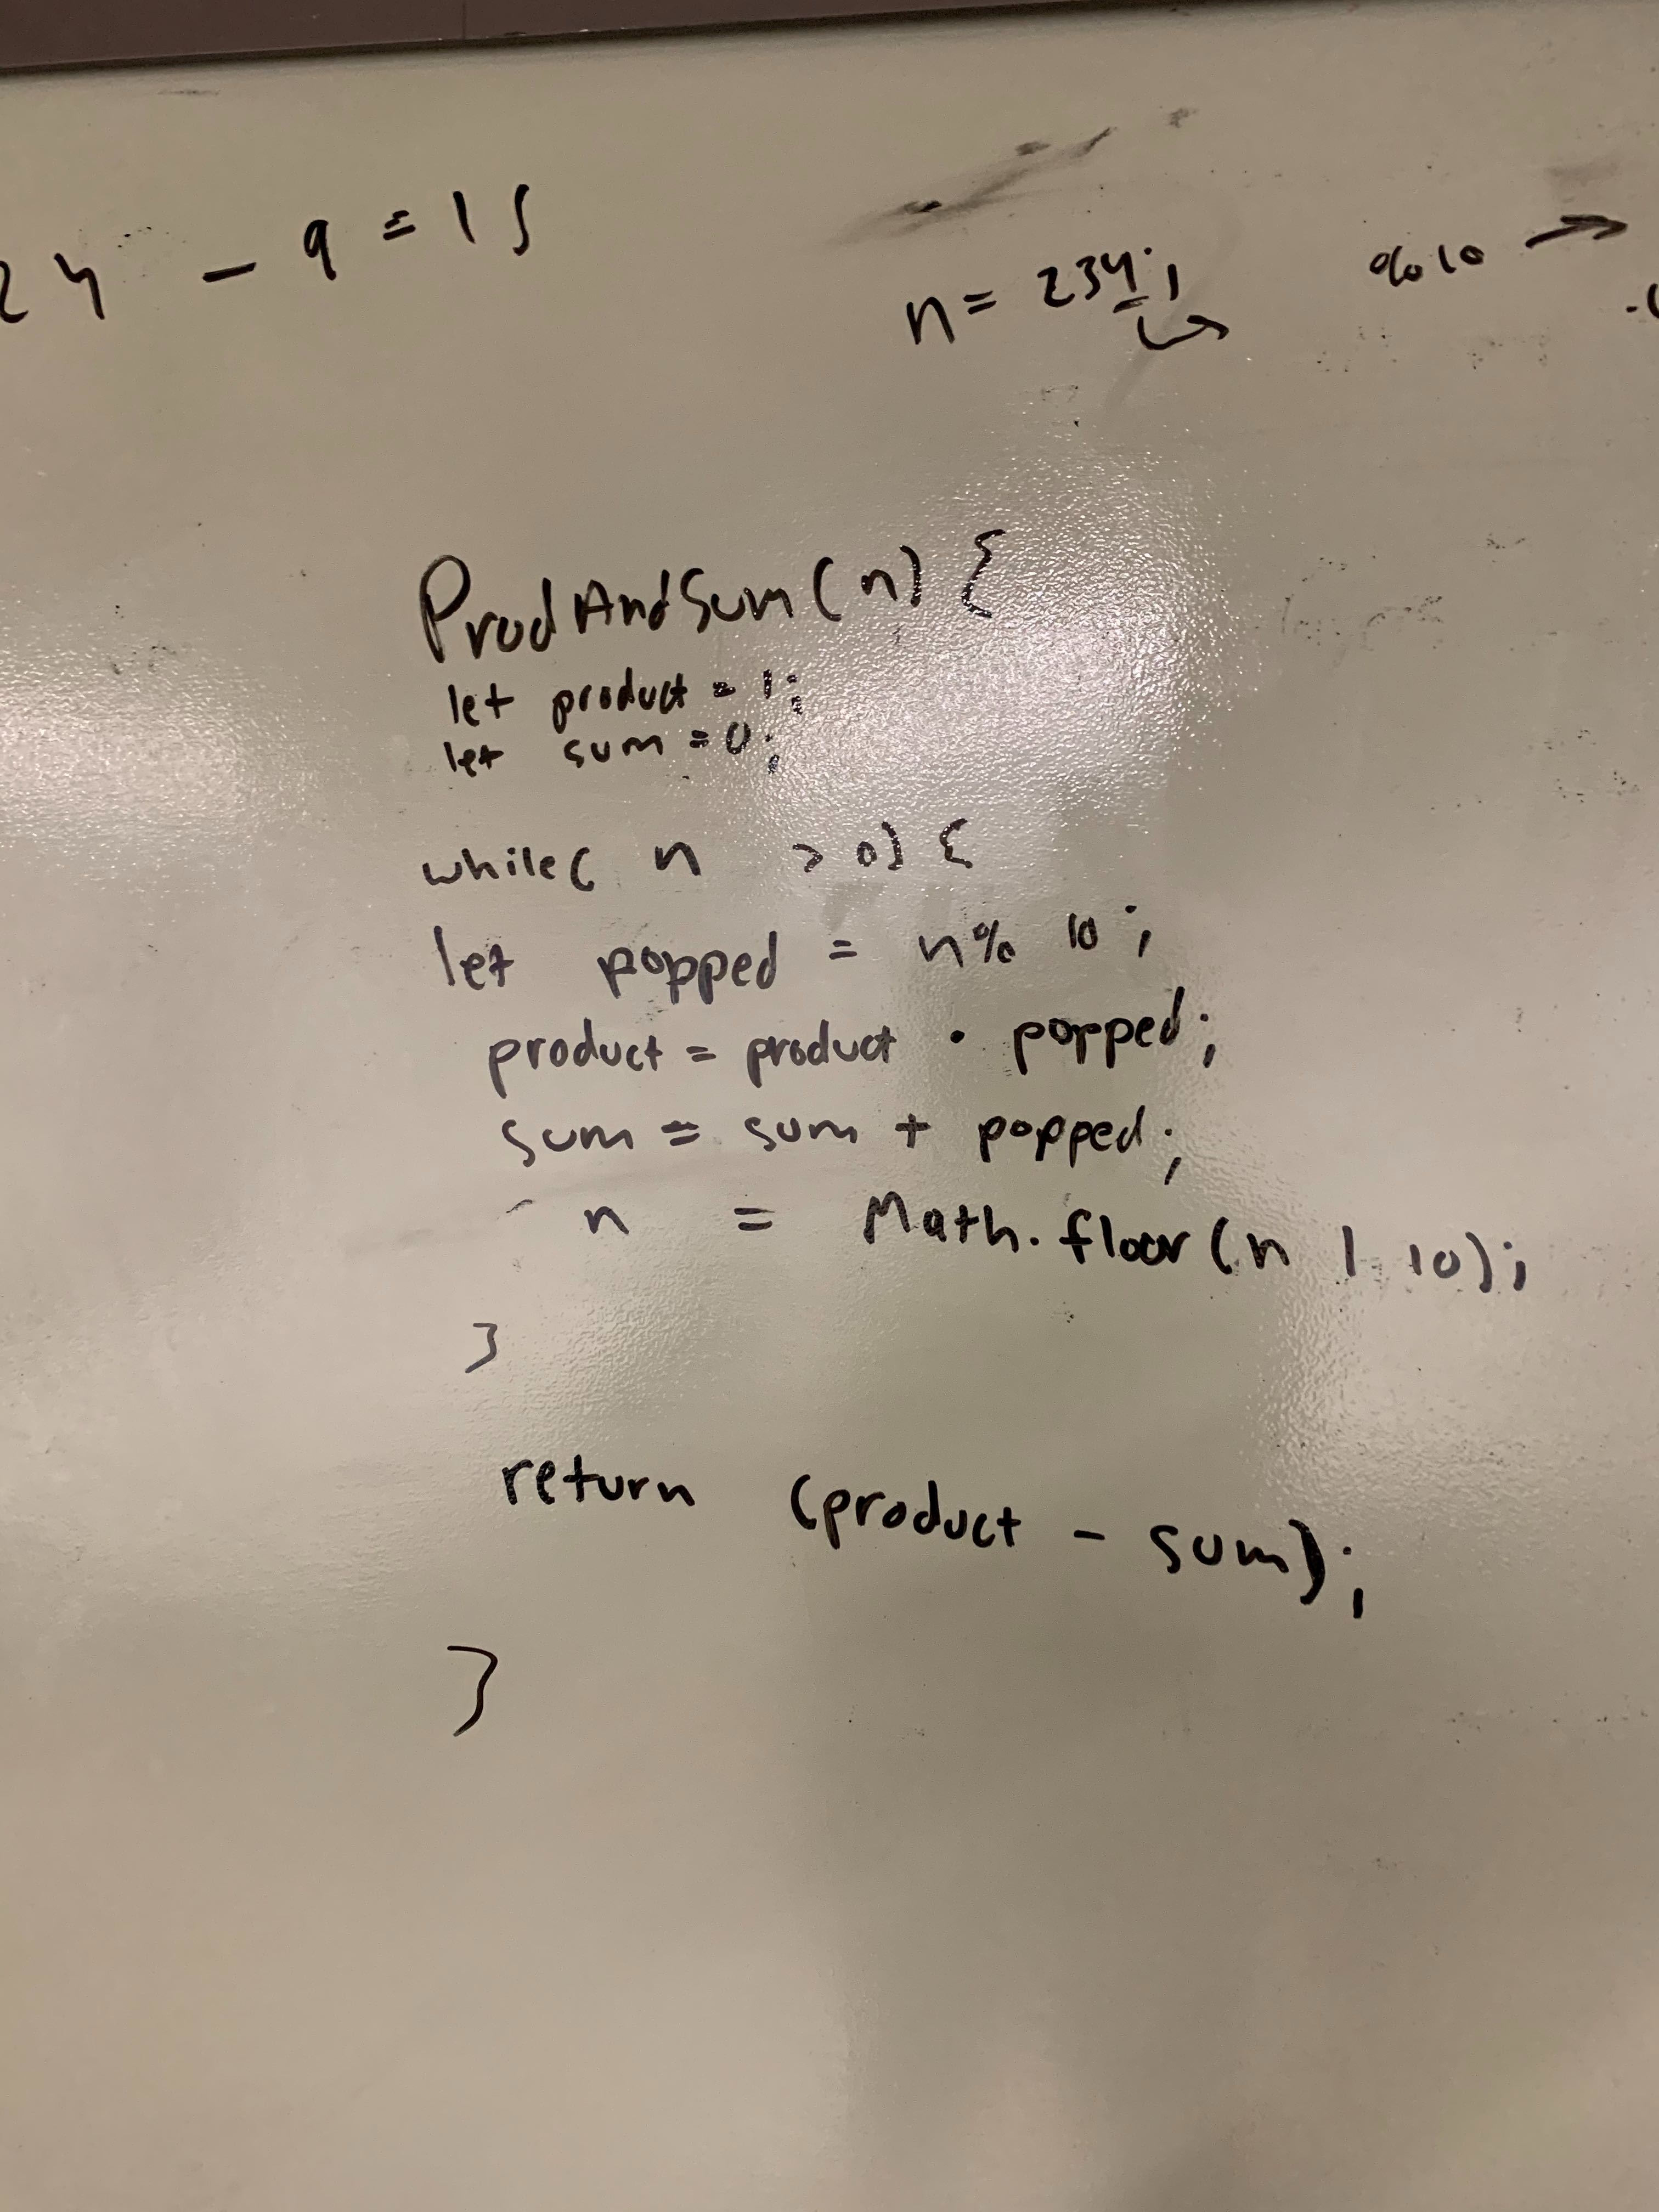 24 - 9 = 15
n = 234; %10 →
ProdAndSum(n) {
let product = 1;
let sum = 0;
while( n > 0) {
let popped = n % 10;
product = product · popped;
sum = sum + popped;
n = Math.floor(n | 10);
}
return (product - sum);
}